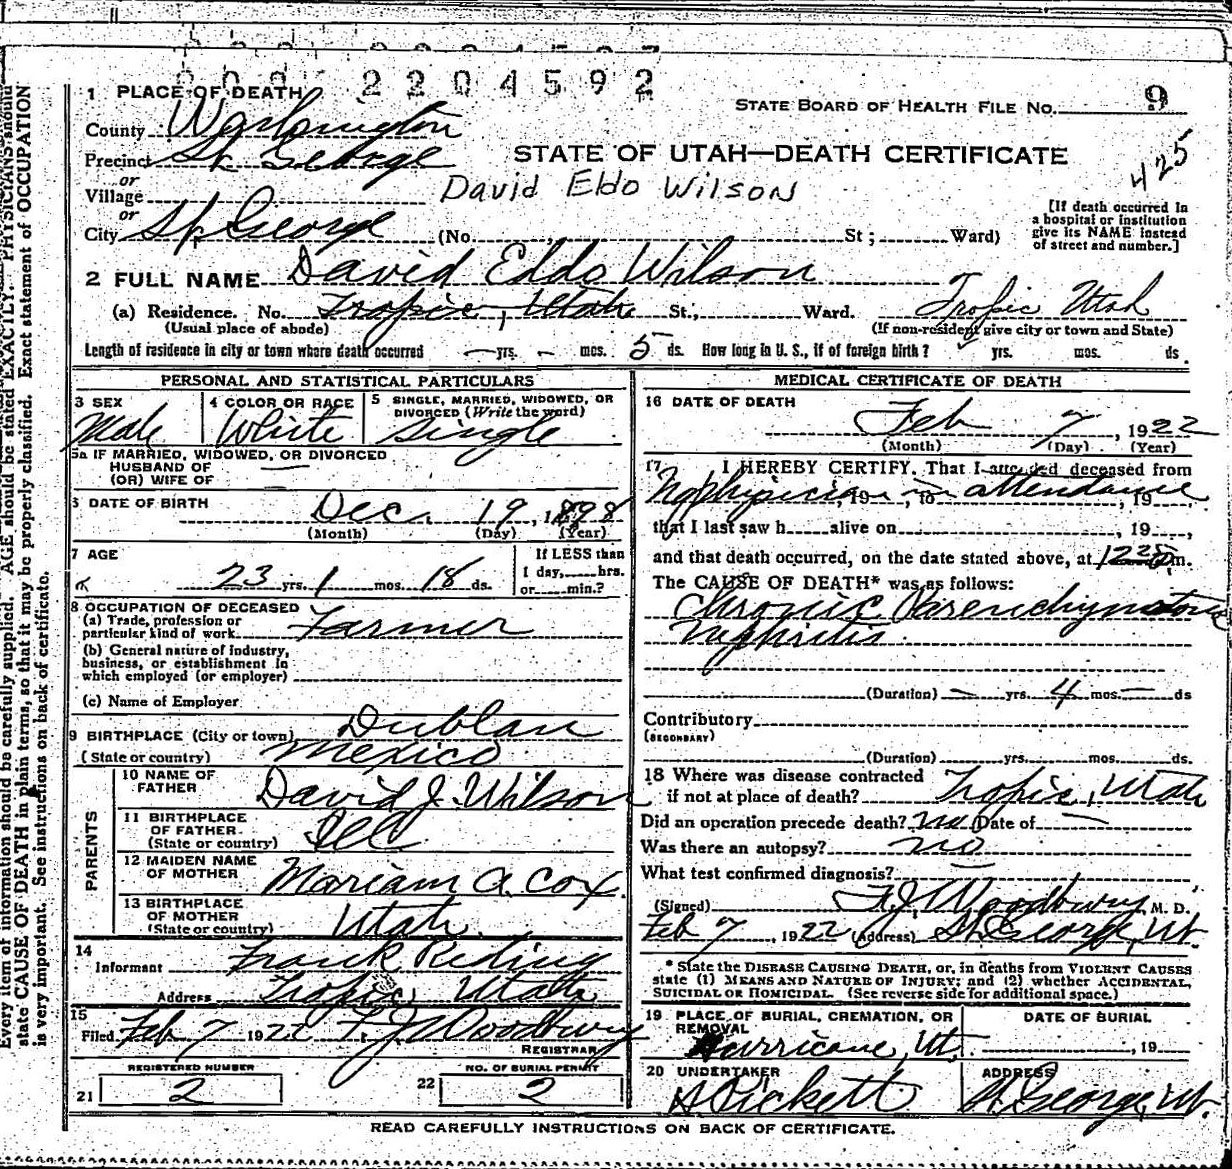 2204592
1 PLACE OF DEATH
STATE BOARD OF HEALTH FILE No. 9
County Washington
Precinct St George
STATE OF UTAH—DEATH CERTIFICATE
425
or
Village
David Eldo Wilson
or
City St. George (No. St; Ward)
[If death occurred in
a hospital or institution
give its NAME instead
of street and number.]
2 FULL NAME David Eldo Wilson
(a) Residence. No. Tropic, Utah St., Ward. Tropic Utah
(Usual place of abode) (If non-resident give city or town and State)
Length of residence in city or town where death occurred — yrs. - mos. 5 ds. How long in U. S., if of foreign birth? yrs. mos. ds.
PERSONAL AND STATISTICAL PARTICULARS
3 SEX
Male
4 COLOR OR RACE
White
5 SINGLE, MARRIED, WIDOWED, OR
DIVORCED (Write the word)
Single
5a IF MARRIED, WIDOWED, OR DIVORCED
HUSBAND OF
(OR) WIFE OF —
6 DATE OF BIRTH Dec. 19, 1898
(Month) (Day) (Year)
7 AGE
23 yrs. 1 mos. 18 ds.
If LESS than
1 day, hrs.
or min.?
8 OCCUPATION OF DECEASED
(a) Trade, profession or
particular kind of work Farmer
(b) General nature of industry,
business, or establishment in
which employed (or employer)
(c) Name of Employer
9 BIRTHPLACE (City or town) Dublan
(State or country) Mexico
PARENTS
10 NAME OF
FATHER David J. Wilson
11 BIRTHPLACE
OF FATHER
(State or country)
12 MAIDEN NAME
OF MOTHER Mariam A. Cox
13 BIRTHPLACE
OF MOTHER
(State or country) Utah
14
Informant Frank Riding
Address Tropic Utah
15
Filed Feb 7 1922 F. J. Woodbury
REGISTRAR
REGISTERED NUMBER
21 2
NO. OF BURIAL PERMIT
22 2
MEDICAL CERTIFICATE OF DEATH
16 DATE OF DEATH
Feb 7, 1922
(Month) (Day) (Year)
17 I HEREBY CERTIFY, That I attended deceased from
No physician, 19 in to attendance, 19
that I last saw h alive on , 19 ,
and that death occurred, on the date stated above, at m.
The CAUSE OF DEATH* was as follows:
Chronic Parenchymatous
Nephritis
(Duration) — yrs. 4 mos. — ds
Contributory
(SECONDARY)
(Duration) yrs. mos. ds.
18 Where was disease contracted
if not at place of death? Tropic, Utah
Did an operation precede death? no Date of —
Was there an autopsy? no
What test confirmed diagnosis? —
(Signed) F. J. Woodbury, M. D.
Feb 7, 1922 (Address) St. George, Ut.
* State the DISEASE CAUSING DEATH, or, in deaths from VIOLENT CAUSES
state (1) MEANS AND NATURE OF INJURY; and (2) whether ACCIDENTAL,
SUICIDAL OR HOMICIDAL. (See reverse side for additional space.)
19 PLACE OF BURIAL, CREMATION, OR
REMOVAL
Hurricane, Ut.
DATE OF BURIAL
, 19
20 UNDERTAKER
Pickett
ADDRESS
St. George, Ut.
READ CAREFULLY INSTRUCTIONS ON BACK OF CERTIFICATE.
Every item of information should be carefully supplied. AGE should be stated EXACTLY. PHYSICIANS should
state CAUSE OF DEATH in plain terms, so that it may be properly classified. Exact statement of OCCUPATION
is very important. See instructions on back of certificate.